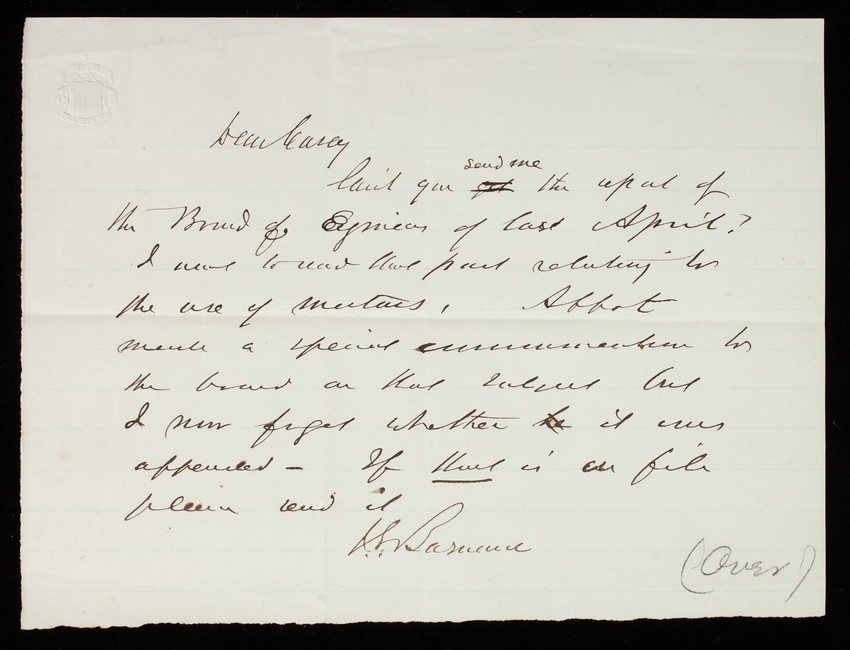 Dear Casey
send me
Can't you get the report of
the Board of Engineers of last April?
I want to read that part relating to
the use of mortars. Abbot
made a special communication to
the board on that subject but
I now forget whether it was
appended – If that is on file
please send it
J.G. Barnard
(Over)